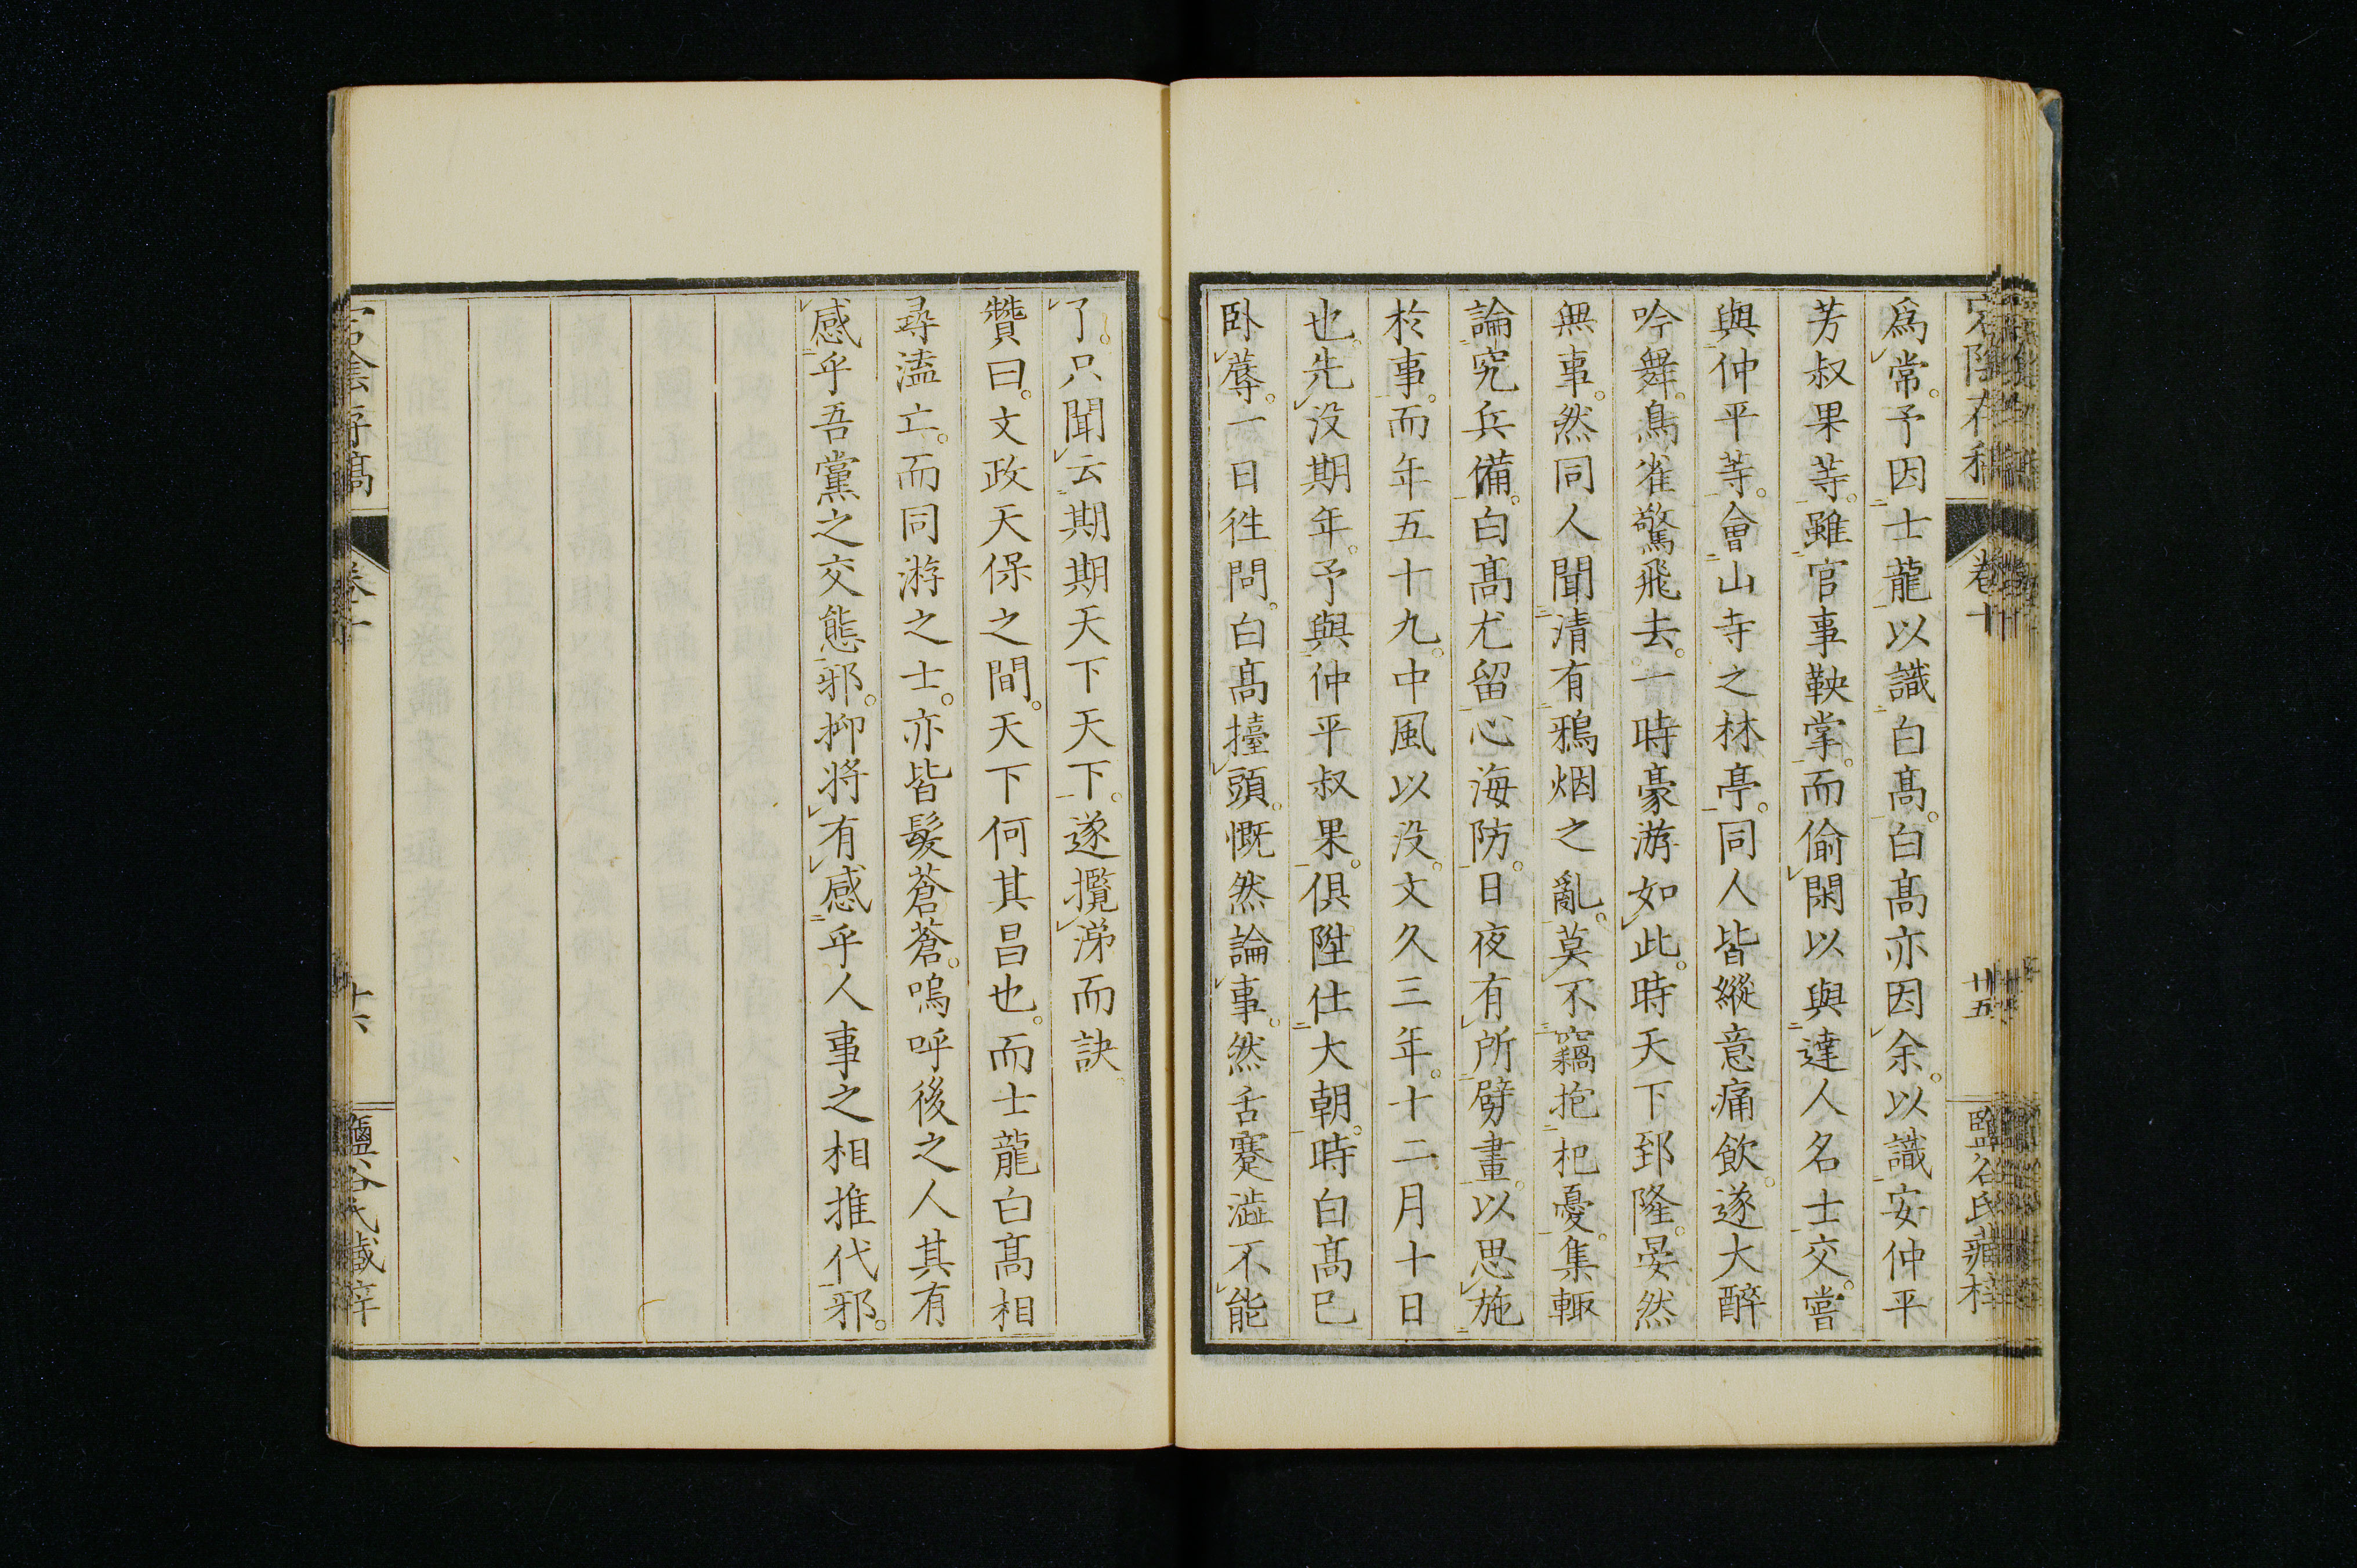 爲常。予因士龍以識白髙。白髙亦因余。以識安仲平
芳叔果等。雖官事鞅掌。而偷閑以與達人名士交。嘗
與仲平等。會山寺之林亭。同人皆縱意痛飲。遂大醉
吟舞。鳥雀驚飛去。一時豪游如此。時天下郅隆。晏然
無事。然同人聞清有鴉烟之亂。莫不竊抱杞憂。集輙
論究兵備。白髙尤留心海防。日夜有所劈畫。以思施
於事。而年五十九。中風以没。文久三年。十二月十日
也。先没期年。予與仲平叔果。俱陞仕大朝。時白髙已
卧蓐。一日徃問。白髙擡頭。慨然論事。然舌蹇澁不能
了。只聞云期期天下天下。遂攬涕而訣。
贊曰。文政天保之間。天下何其昌也。而士龍白髙相
尋溘亡。而同游之士。亦皆髮蒼蒼。嗚呼後之人其有
感乎吾黨之交態邪。抑將有感乎人事之相推代邪。
卷十
廿五
鹽谷氏藏梓
宕陰存稿
十六